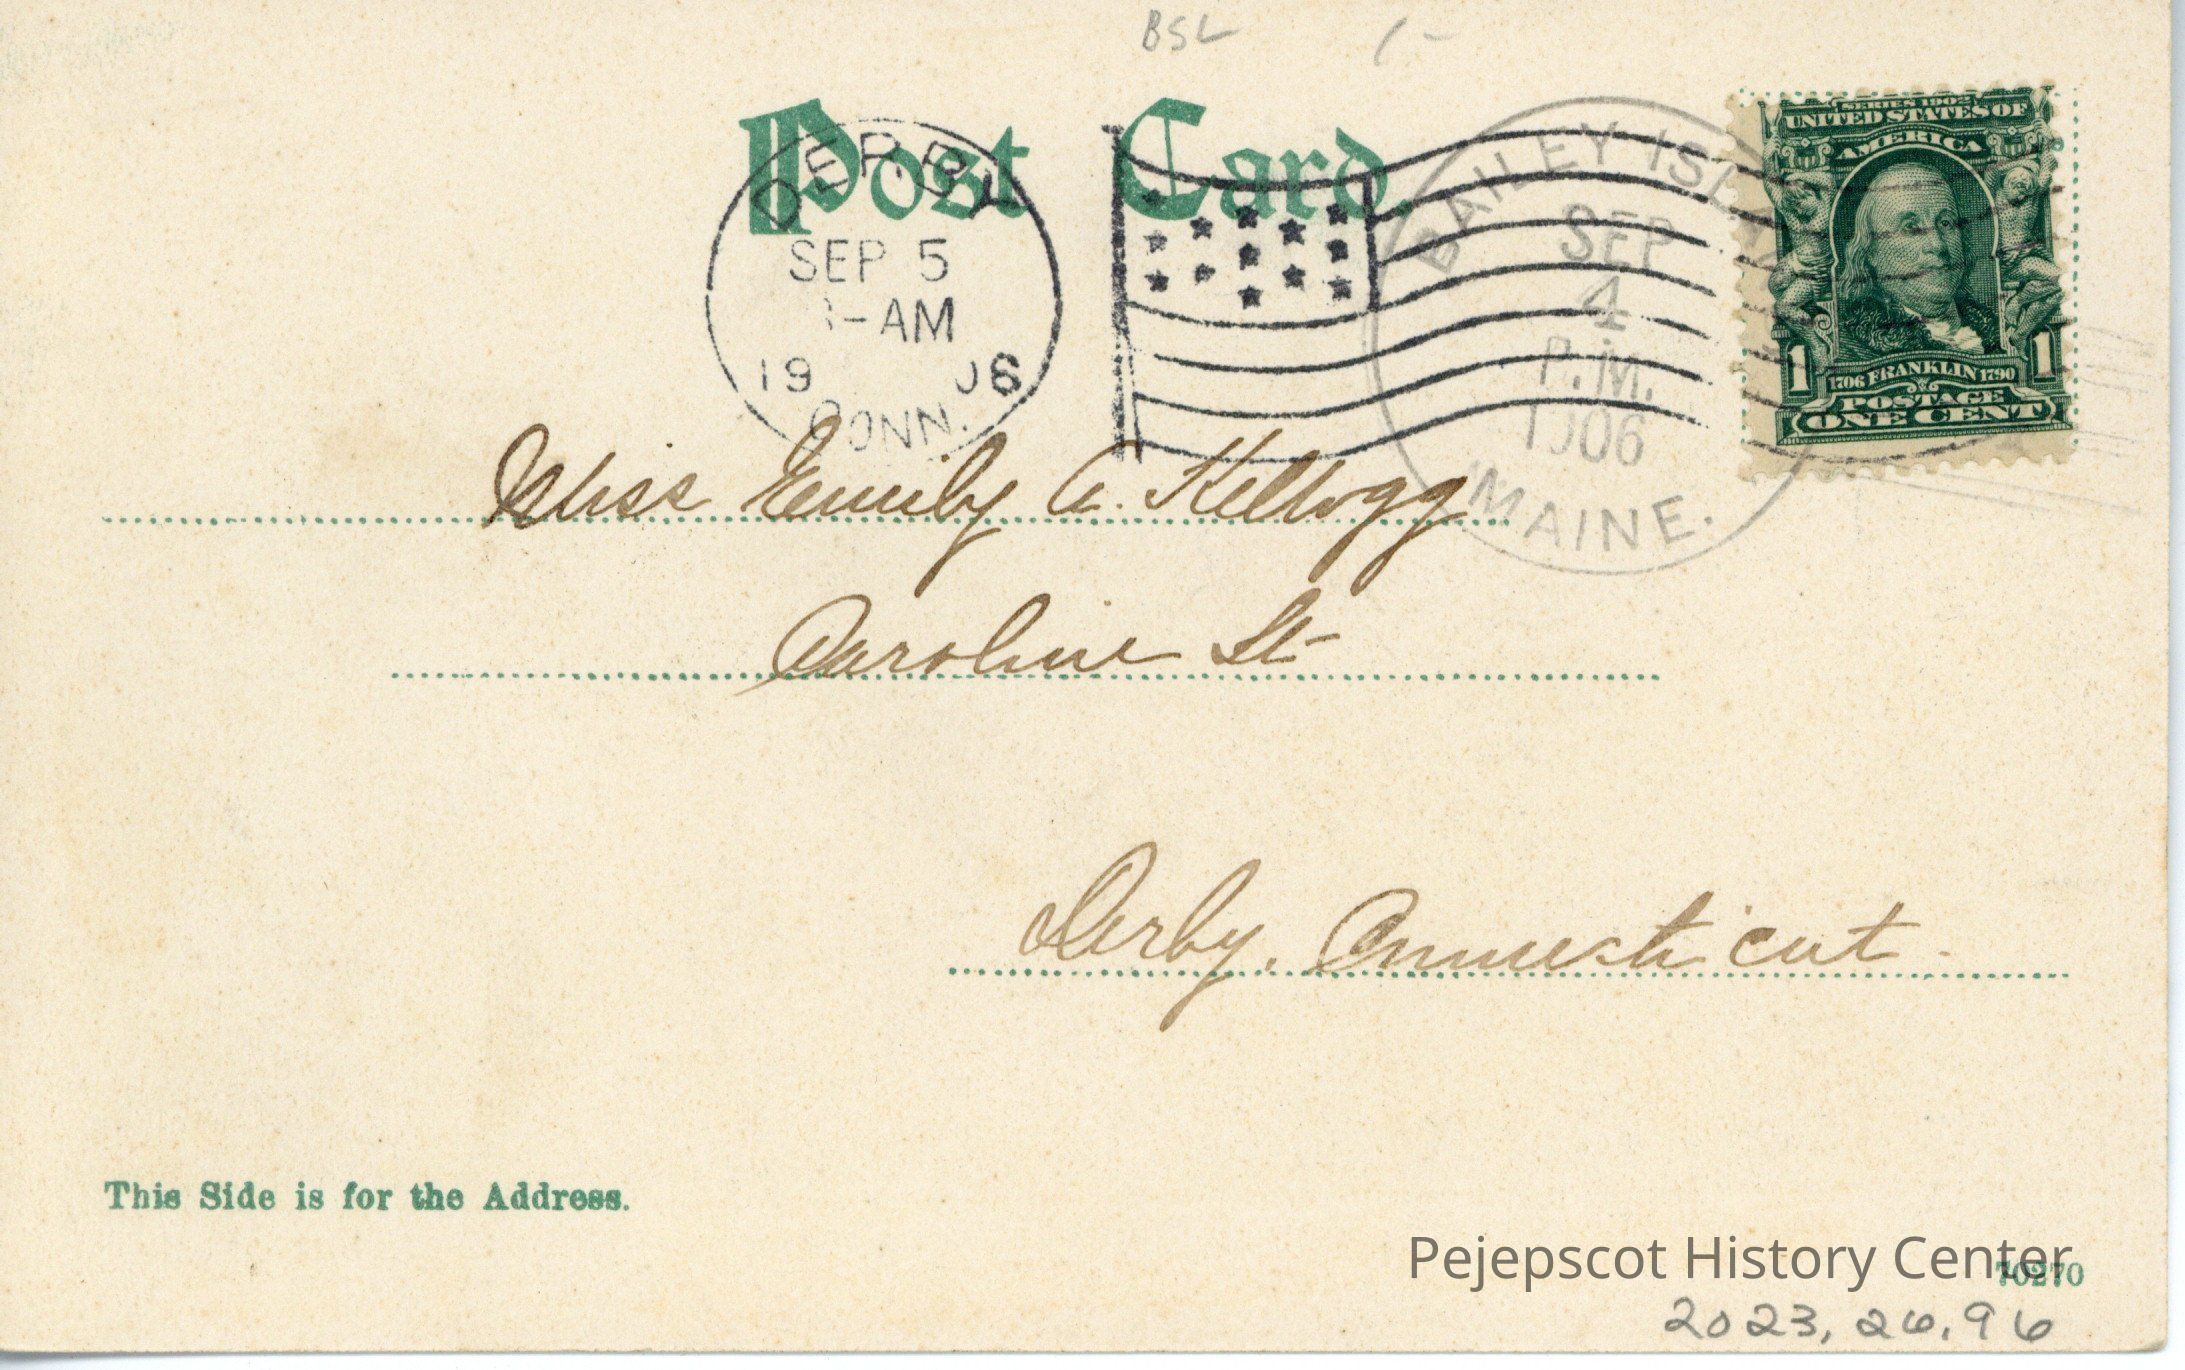 BSL 1-
Post Card.
DERBY
SEP 5
-AM
19 06
CONN.
BAILEY ISLAND
SEP
4
P.M.
1906
MAINE.
SERIES 1902
UNITED STATES OF
AMERICA
1 1706 FRANKLIN 1790 1
POSTAGE
ONE CENT
Miss Emily A. Kellogg
Caroline St
Derby, Connecticut.
This Side is for the Address.
Pejepscot History Center
70270
2023.26.96